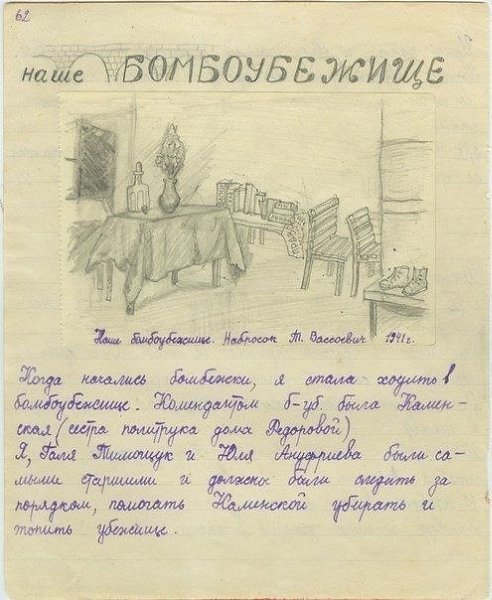 62
наше БОМБОУБЕЖИЩЕ
Наше бомбоубежище. Набросок Т. Вассоевич 1941г.
Когда начались бомбежки, я стала ходить в
бомбоубежище. Комендантом б-уб. была Камен-
ская (сестра политрука дома Федоровой)
Я, Галя Тимощук и Юля Ануфриева были са-
мыми старшими и должны были следить за
порядком, помогать Каминской убирать и
топить убежище.